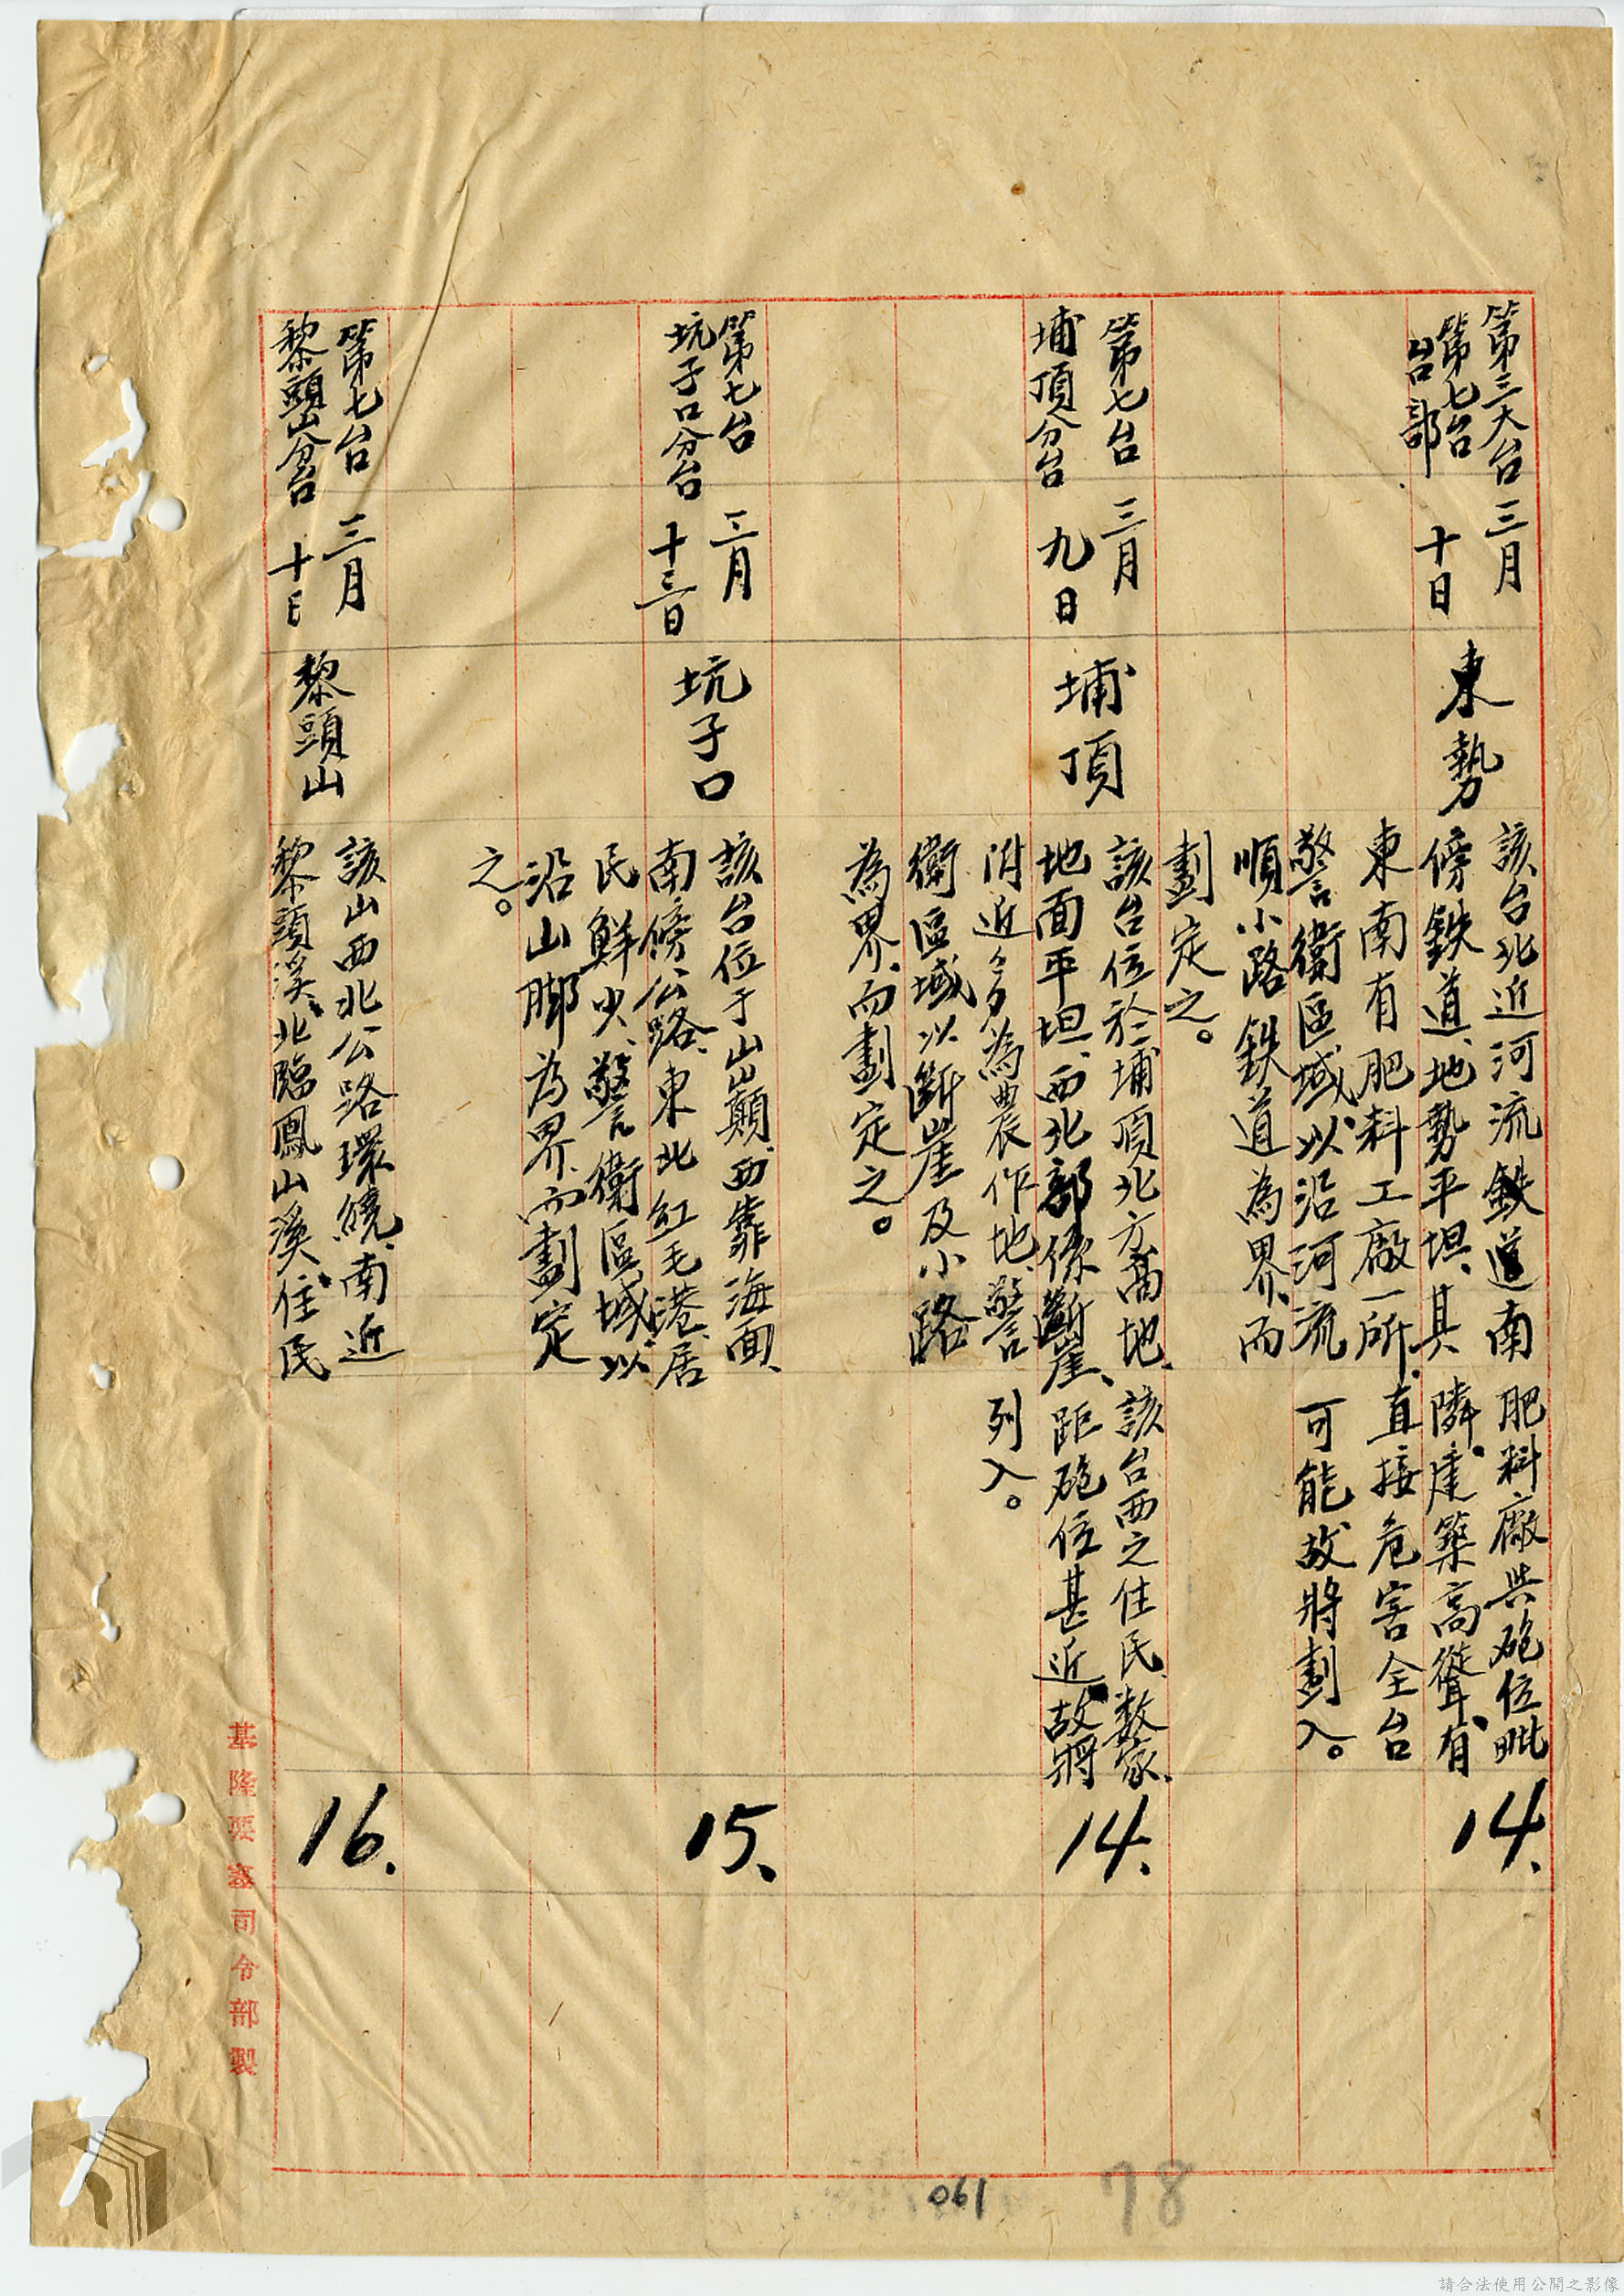 第三大台
第七台
台部
三月
十日
東勢
該台北近河流鉄道南
傍鉄道、地勢平坦、其
東南有肥料工廠一所、
警衛區域以沿河流
順小路鉄道為界、而
劃定之。
肥料廠與砲位毗
隣、建築高聳、有
直接危害全台
可能故將劃入。
14、
第七台
埔頂分台
三月
九日
埔頂
該台位於埔頂北方高地、
地面平坦、西北部係斷崖、
附近多為農作地、警
衛區域以斷崖及小路
為界、而劃定之。
該台西之住民數家、
距砲位甚近、故將
列入。
14、
第七台
坑子口分台
三月
十三日
坑子口
該台位于山巔、西靠海面、
南傍公路、東北紅毛港、居
民鮮少、警衛區域以
沿山脚為界、而劃定
之。
15、
第七台
黎頭山分台
三月
十日
黎頭山
該山西北公路環繞、南近
黎頭溪、北臨鳳山溪、住民
16.
基隆要塞司令部製
061
78
請合法使用公開之影像